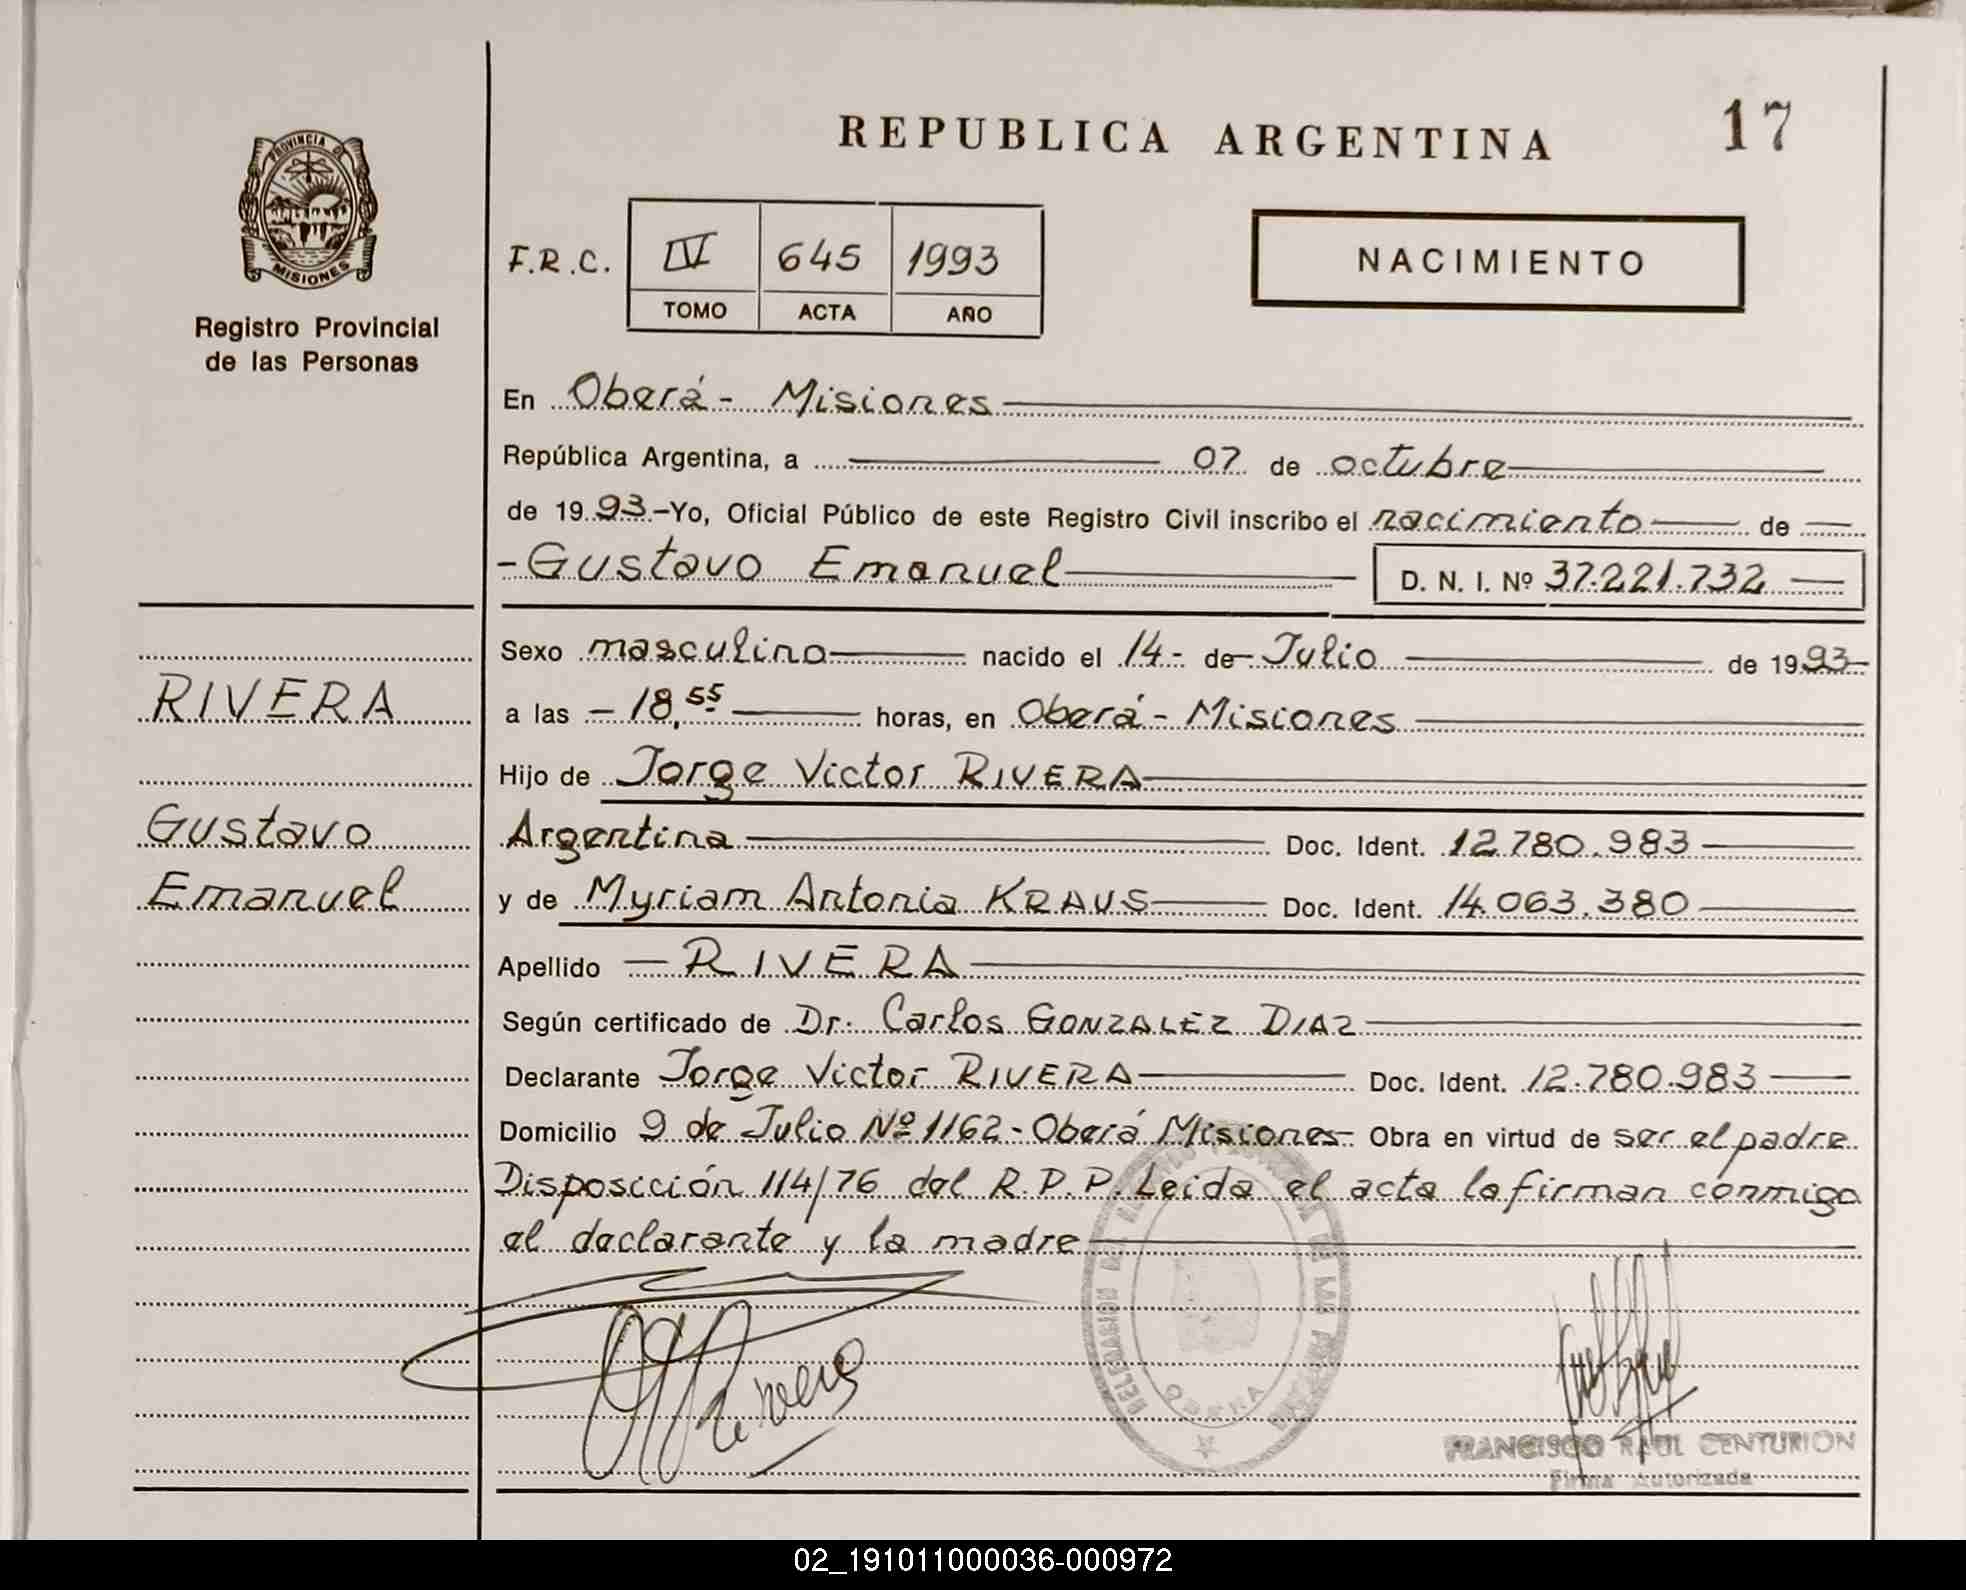 REPUBLICA ARGENTINA
17
PROVINCIA DE
MISIONES
Registro Provincial
de las Personas
F.R.C.
IV 645 1993
TOMO ACTA AÑO
NACIMIENTO
En Oberá - Misiones
República Argentina, a 07 de octubre
de 1993 - Yo, Oficial Público de este Registro Civil inscribo el nacimiento de
- Gustavo Emanuel D. N. I. Nº 37.221.732
Sexo masculino nacido el 14 - de Julio de 1993
a las - 18,55 horas, en Oberá - Misiones
Hijo de Jorge Victor RIVERA
Argentina Doc. Ident. 12.780.983
y de Myriam Antonia KRAUS Doc. Ident. 14.063.380
Apellido - RIVERA
Según certificado de Dr. Carlos GONZALEZ DIAZ
Declarante Jorge Victor RIVERA Doc. Ident. 12.780.983
Domicilio 9 de Julio Nº 1162 - Oberá Misiones - Obra en virtud de ser el padre
Disposición 114/76 del R.P.P. Leida el acta la firman conmigo
el declarante y la madre
RIVERA
Gustavo
Emanuel
Rivera
DELEGACION DEL REGISTRO PROVINCIAL DE LAS PERSONAS
OBERA
FRANCISCO RAUL CENTURION
Firma Autorizada
02_191011000036-000972